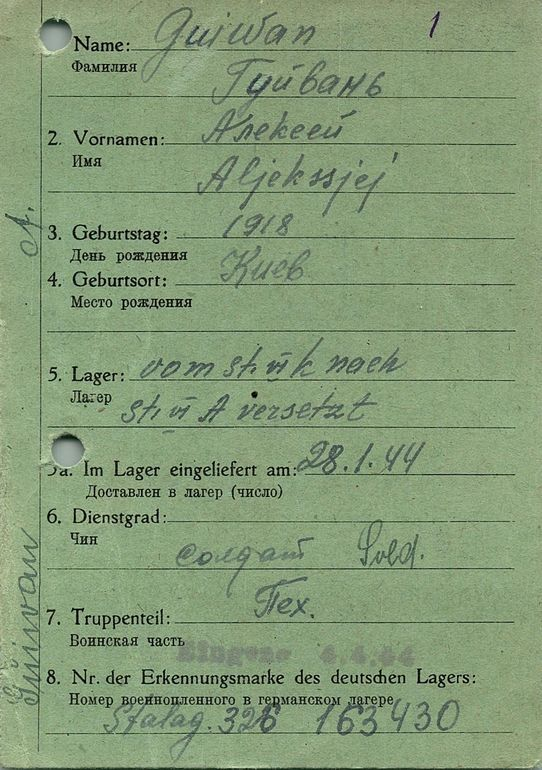 1
Name: Guiwan
Фамилия
Гуйвань
2. Vornamen: Алексей
Имя
Aljekssjej
3. Geburtstag: 1918
День рождения
4. Geburtsort: Киев
Место рождения
5. Lager: vom St. VI K nach
Лагер
St. VI A versetzt
5a. Im Lager eingeliefert am: 28.1.44
Доставлен в лагер (число)
6. Dienstgrad:
Чин
солдат Sold.
7. Truppenteil: Пех.
Воинская часть
4.4.44
8. Nr. der Erkennungsmarke des deutschen Lagers:
Номер военнопленного в германском лагере
Stalag. 326 163430
A.
Guiwan